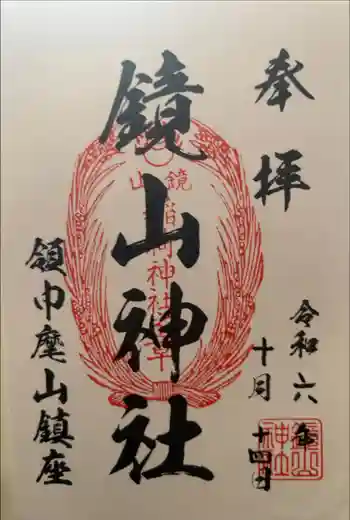 奉拝
令和六年
十月
十四日
鏡山神社
鏡山
稲荷神社
領巾麾山鎮座